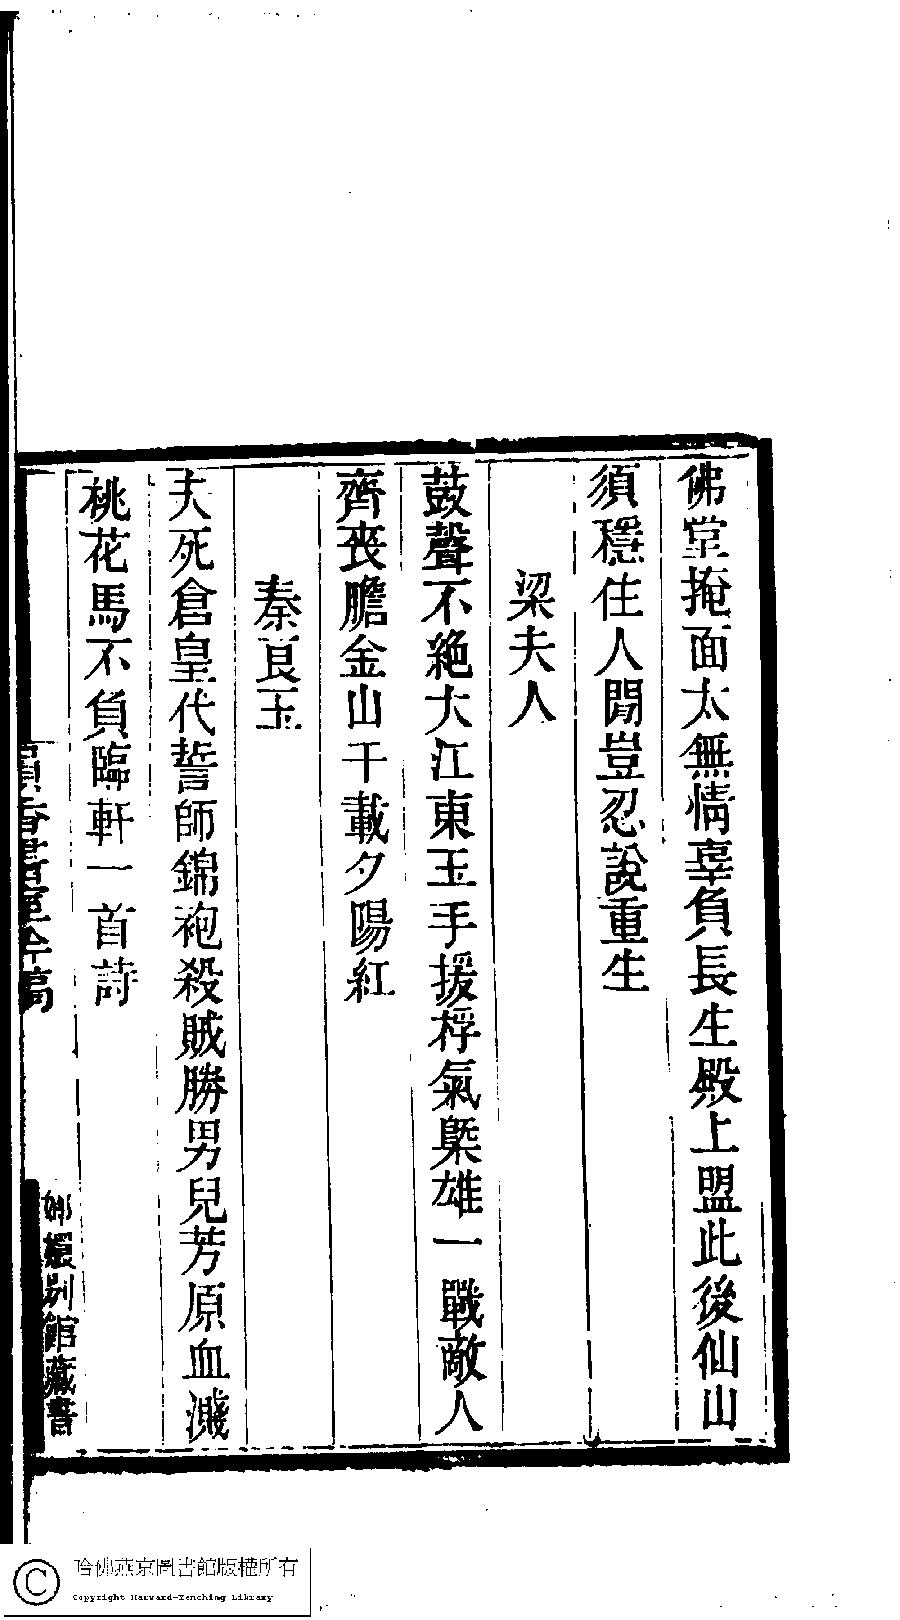 佛堂掩面太無情辜負長生殿上盟此後仙山
須穩住人間豈忍說重生
梁夫人
鼓聲不絕大江東玉手援桴氣槩雄一戰敵人
齊喪膽金山千載夕陽紅
秦良玉
夫死倉皇代誓師錦袍殺賊勝男兒芳原血濺
桃花馬不負臨軒一首詩
韻香書室吟稿
嫏嬛別館藏書
哈佛燕京圖書館版權所有
Copyright Harvard-Yenching Library